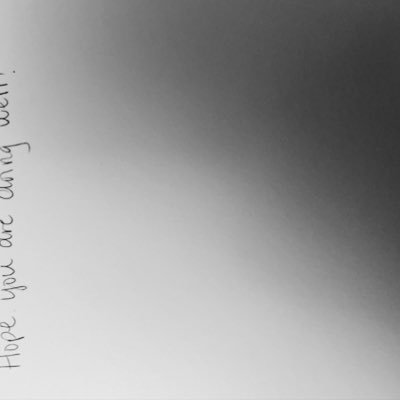 Hope you are doing well!